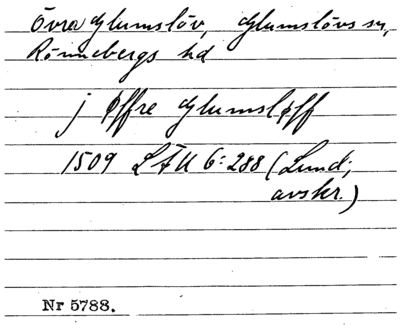 Övra Glumslöv, Glumslövs sn,
Rönnebergs hd
j øffre Glumsløff
1509 LÄU 6:288 (Lund;
avskr.)
Nr 5788.